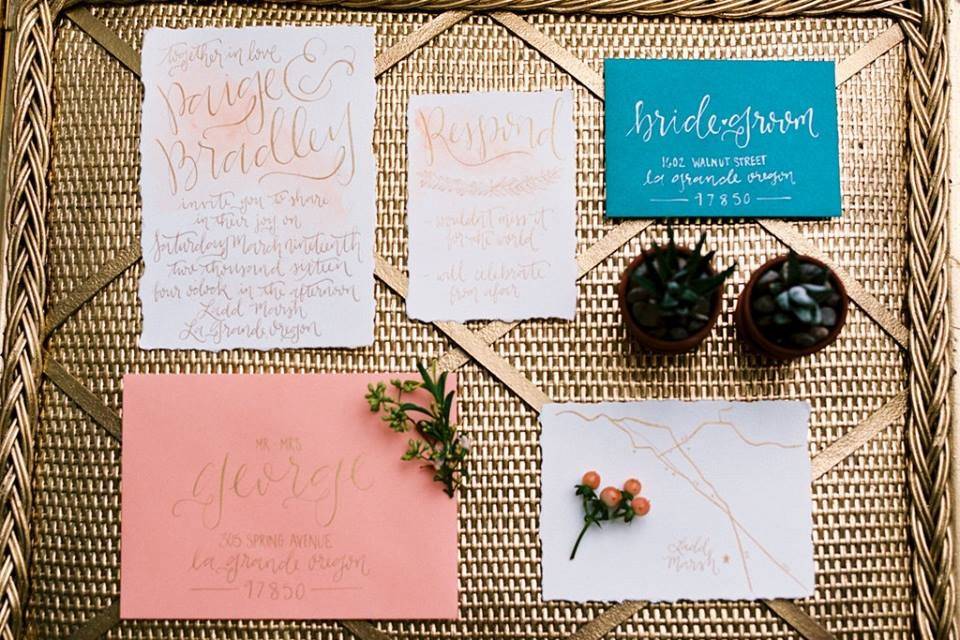 together in love
Paige &
Bradley
invite you to share
in their joy on
Saturday March nineteenth
two thousand sixteen
four o'clock in the afternoon
Ladd Marsh
La Grande, Oregon
Respond
- wouldn't miss it
for the world
- will celebrate
from afar
bride & groom
1602 WALNUT STREET
la grande oregon
97850
MR · MRS
george
305 SPRING AVENUE
la grande oregon
97850
Ladd
Marsh